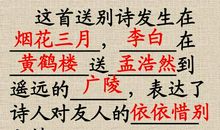 这首送别诗发生在
烟花三月，李白在
黄鹤楼 送 孟浩然到
遥远的 广陵 ,表达了
诗人对友人的依依惜别